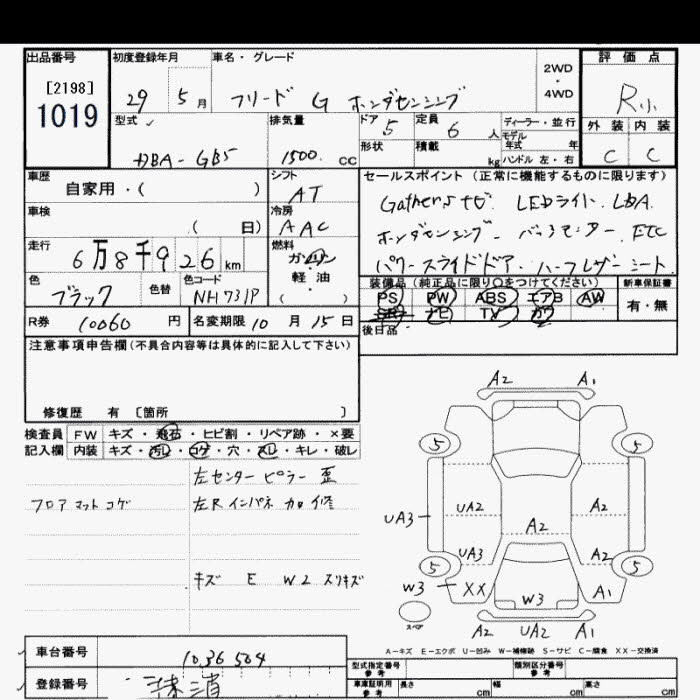 出品番号
[2198]
1019
初度登録年月
29 5月
車名・グレード
フリード G ホンダセンシング
2WD
・
4WD
評価点
R小
外装 内装
C C
型式
DBA-GB5
排気量
1500. CC
ドア 5
定員 6 人
ディーラー・並行
モデル
年式 年
形状
積載 kg
ハンドル 左・右
車歴
自家用・( )
シフト
AT
車検
( 日)
冷房
AAC
走行
6万8千926km
燃料
ガソリン
・
軽油
( )
色
ブラック
色替
色コード
NH731P
R券 10060 円
名変期限 10月15日
セールスポイント(正常に機能するものに限ります)
Gathersナビ LEDライト LDA
ホンダセンシング バックモニター ETC
パワースライドドア ハーフレザーシート
装備品(純正品に限り○をつけてください)
PS PW ABS エアB AW
SR ナビ TV カワ
新車保証書
有・無
後日品
注意事項申告欄(不具合内容等は具体的に記入して下さい)
修復歴 有 〔箇所 〕
検査員
記入欄
FW キズ・飛石・ヒビ割・リペア跡・×要
内装 キズ・汚レ・コゲ・穴・スレ・キレ・破レ
左センターピラー 歪
フロアマットコゲ
左Rインパネ 加修
キズ E W2 スリキズ
A2 A1
5 5
UA2 A2
UA3 A2
UA3 A2
5 5
W3 XX W3 A1
スペア
A2 UA2 A1
A-キズ E-エクボ U-凹み W-補修跡 S-サビ C-腐食 XX-交換済
車台番号
1036504
登録番号
抹消
型式指定番号
参考
類別区分番号
参考
車庫証明用
参考
長さ cm 幅 cm 高さ cm